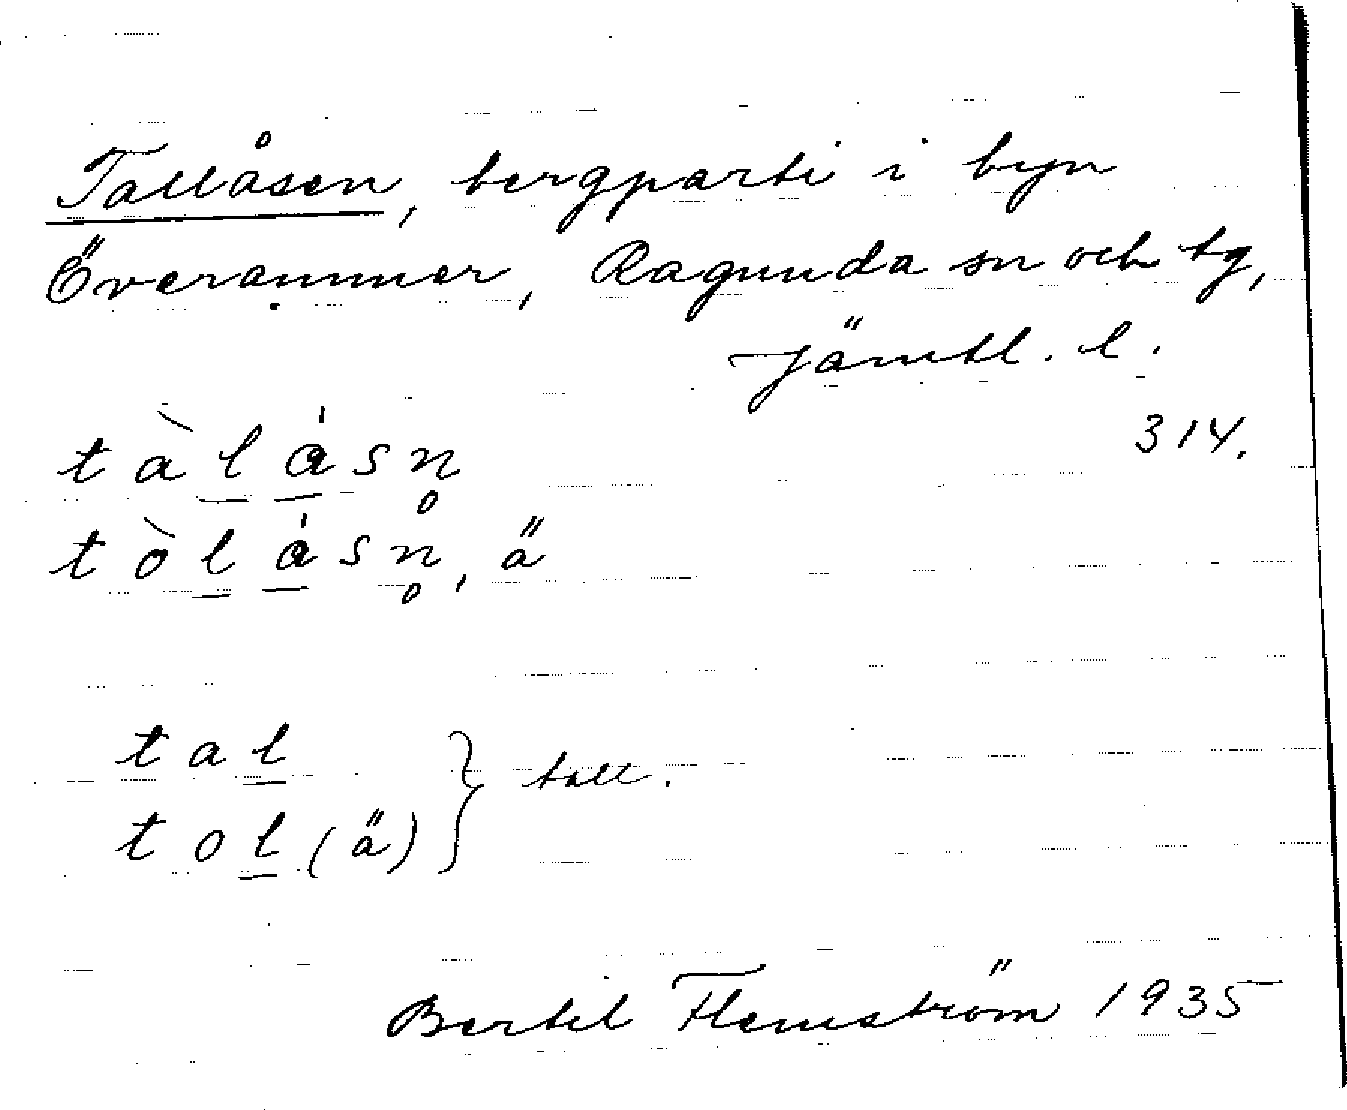 Tallåsen, bergparti i byn
Överammer, Ragunda sn och tg,
Jämtl. l.
314.
tàlásn̥
tòlásn̥, ä
tal
tol (ä) } tall.
Bertil Flemström 1935